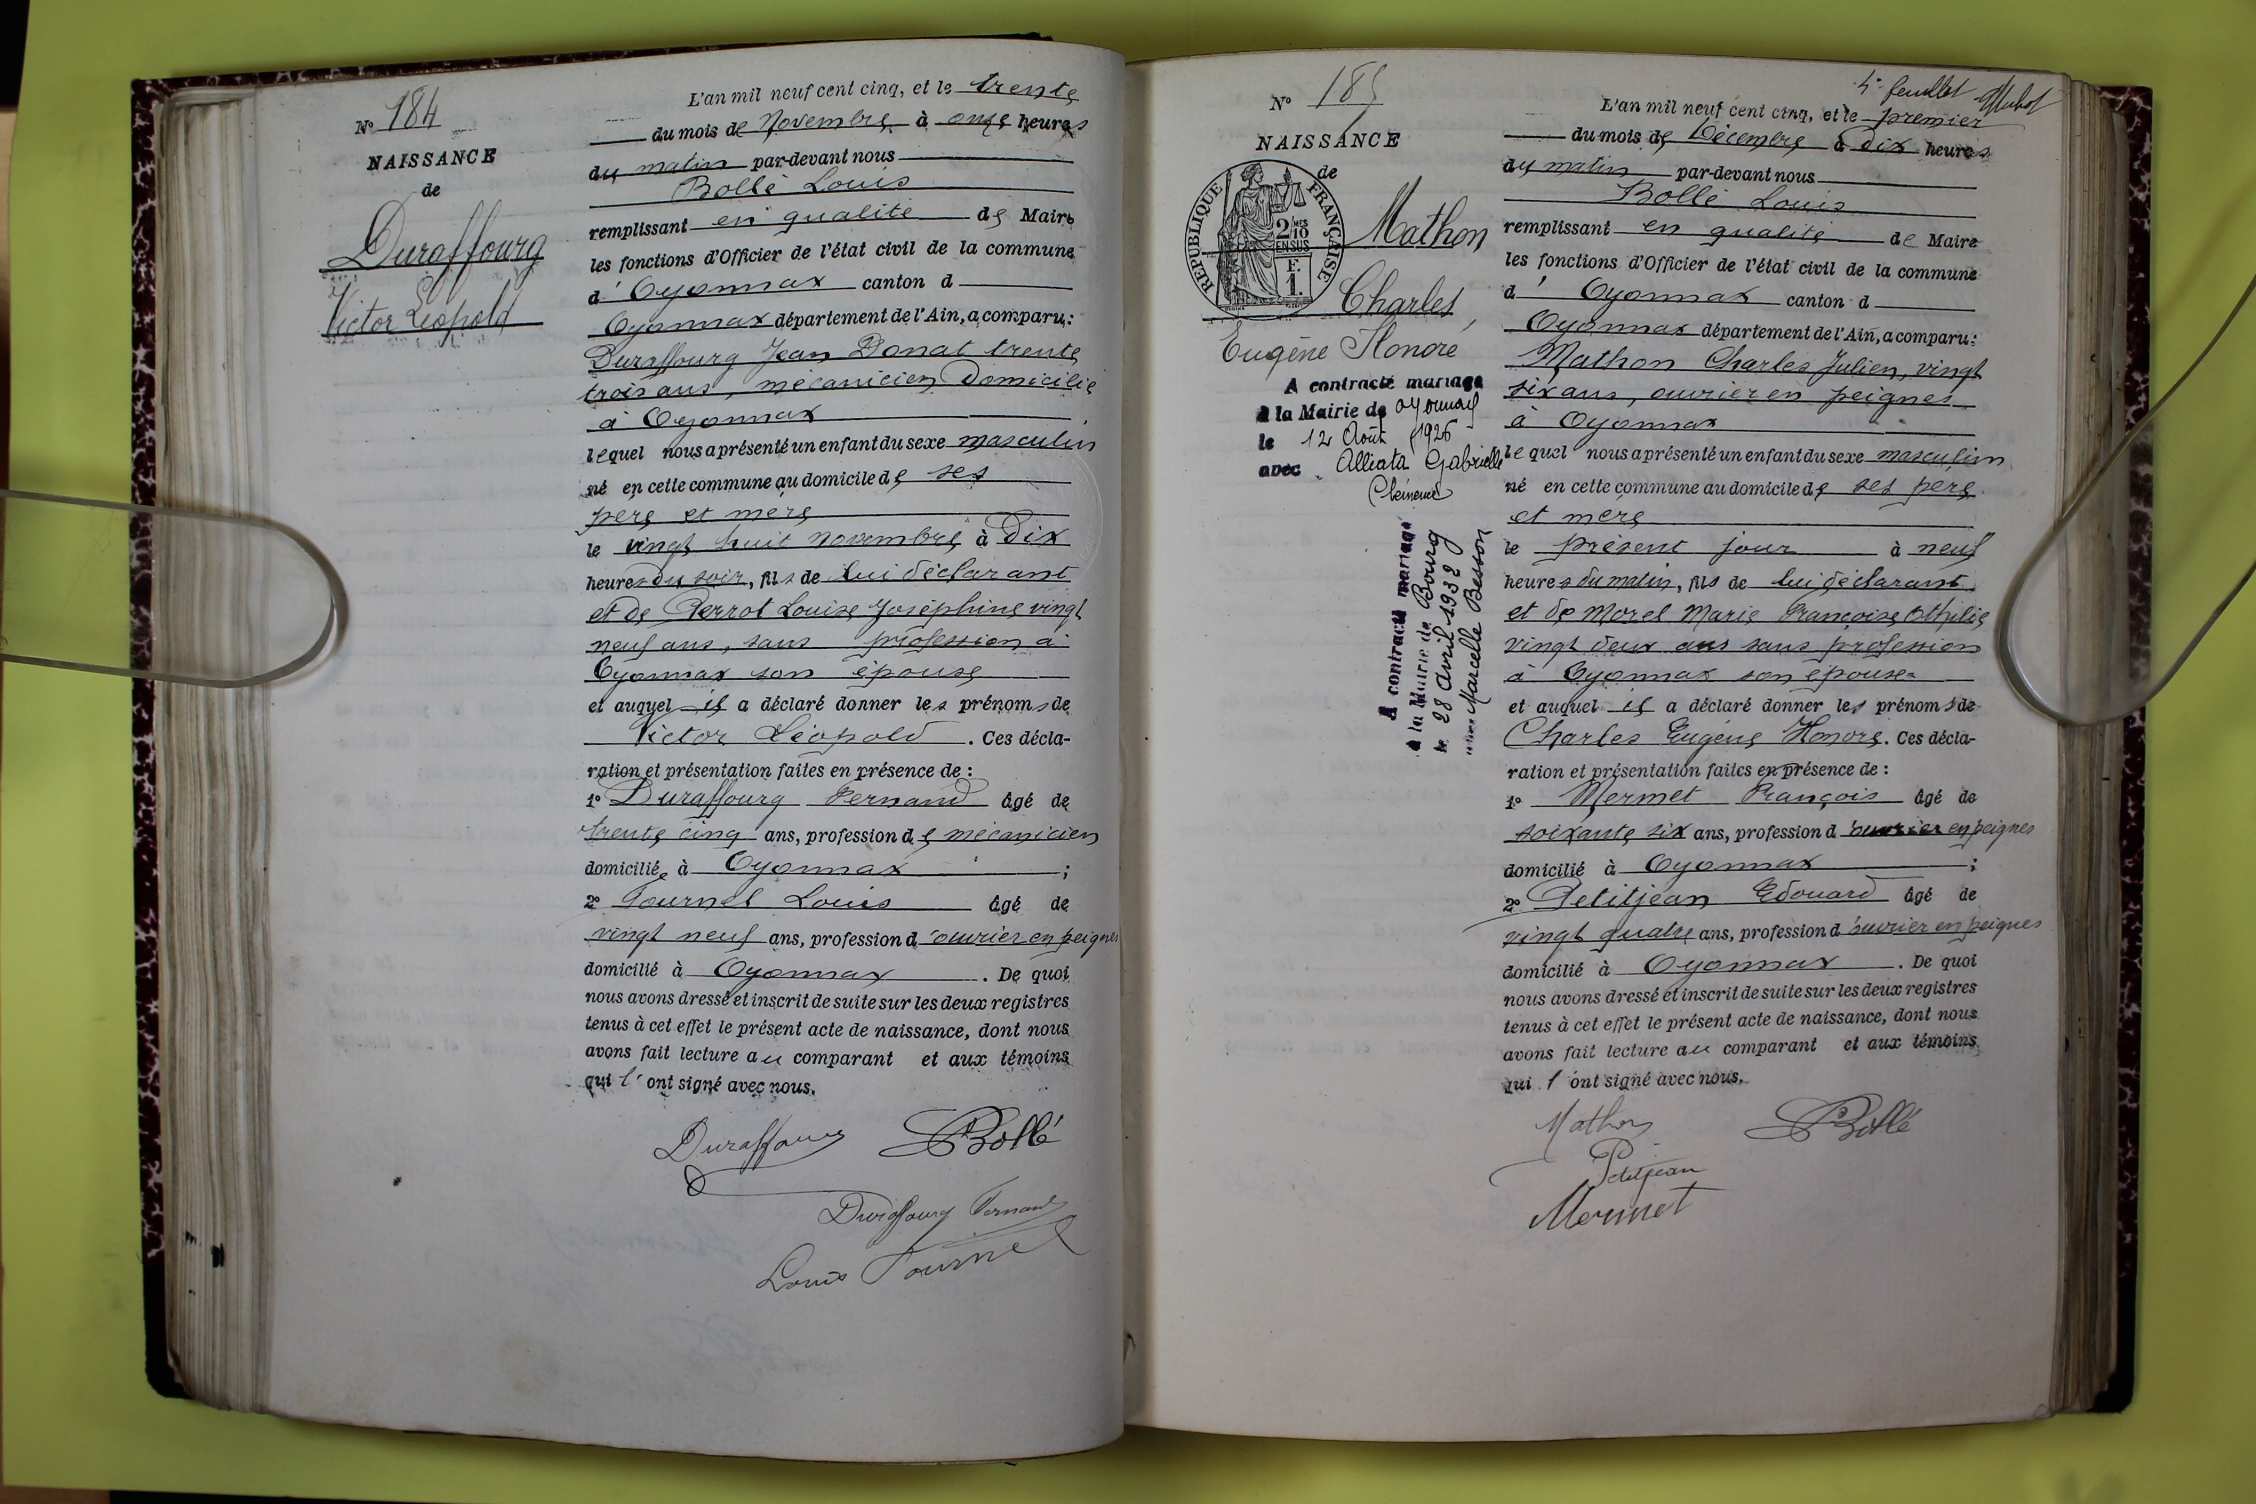 N° 184
NAISSANCE
de
Duraffourg
Victor Léopold
L'an mil neuf cent cinq, et le trente
du mois de Novembre à onze heures
du matin par-devant nous
Bollé Louis
remplissant en qualité de Maire
les fonctions d'Officier de l'état civil de la commune
d'Oyonnax canton d
Oyonnax département de l'Ain, a comparu:
Duraffourg Jean Donat trente
trois ans, mécanicien domicilié
à Oyonnax
lequel nous a présenté un enfant du sexe masculin
né en cette commune au domicile de ses
père et mère
le vingt huit novembre à Dix
heures du soir, fils de lui déclarant
et de Perrot Louise Joséphine vingt
neuf ans, sans profession à
Oyonnax son épouse
et auquel il a déclaré donner les prénoms de
Victor Léopold. Ces décla-
ration et présentation faites en présence de :
1° Duraffourg Fernand âgé de
trente cinq ans, profession de mécanicien
domicilié à Oyonnax ;
2° Tournel Louis âgé de
vingt neuf ans, profession d'ouvrier en peignes
domicilié à Oyonnax. De quoi
nous avons dressé et inscrit de suite sur les deux registres
tenus à cet effet le présent acte de naissance, dont nous
avons fait lecture au comparant et aux témoins
qui l'ont signé avec nous.
Duraffourg Bollé
Duraffourg Fernand
Louis Tournel
4e feuillet
N° 185
NAISSANCE
de
RÉPUBLIQUE FRANÇAISE
2/10MES
EN SUS
F.
1.
Mathon
Charles,
Eugène Honoré
A contracté mariage
à la Mairie de Oyonnax
le 12 Août 1926
avec Alliata Gabrielle
Clémence
A contracté mariage
à la Mairie de Bourg
le 28 Avril 1932
avec Marcelle Besson
L'an mil neuf cent cinq, et le premier
du mois de Décembre à dix heures
du matin par-devant nous
Bollé Louis
remplissant en qualité de Maire
les fonctions d'Officier de l'état civil de la commune
d' Oyonnax canton d
Oyonnax département de l'Ain, a comparu:
Mathon Charles Julien, vingt
six ans, ouvrier en peignes
à Oyonnax
lequel nous a présenté un enfant du sexe masculin
né en cette commune au domicile de ses père
et mère
le présent jour à neuf
heures du matin, fils de lui déclarant
et de Morel Marie Françoise Othilie
vingt deux ans sans profession
à Oyonnax son épouse
et auquel il a déclaré donner les prénoms de
Charles Eugène Honoré. Ces décla-
ration et présentation faites en présence de :
1° Mermet François âgé de
soixante six ans, profession d'ouvrier en peignes
domicilié à Oyonnax ;
2° Petitjean Edouard âgé de
vingt quatre ans, profession d'ouvrier en peignes
domicilié à Oyonnax. De quoi
nous avons dressé et inscrit de suite sur les deux registres
tenus à cet effet le présent acte de naissance, dont nous
avons fait lecture au comparant et aux témoins
qui l'ont signé avec nous.
Mathon Bollé
Petitjean
Mermet